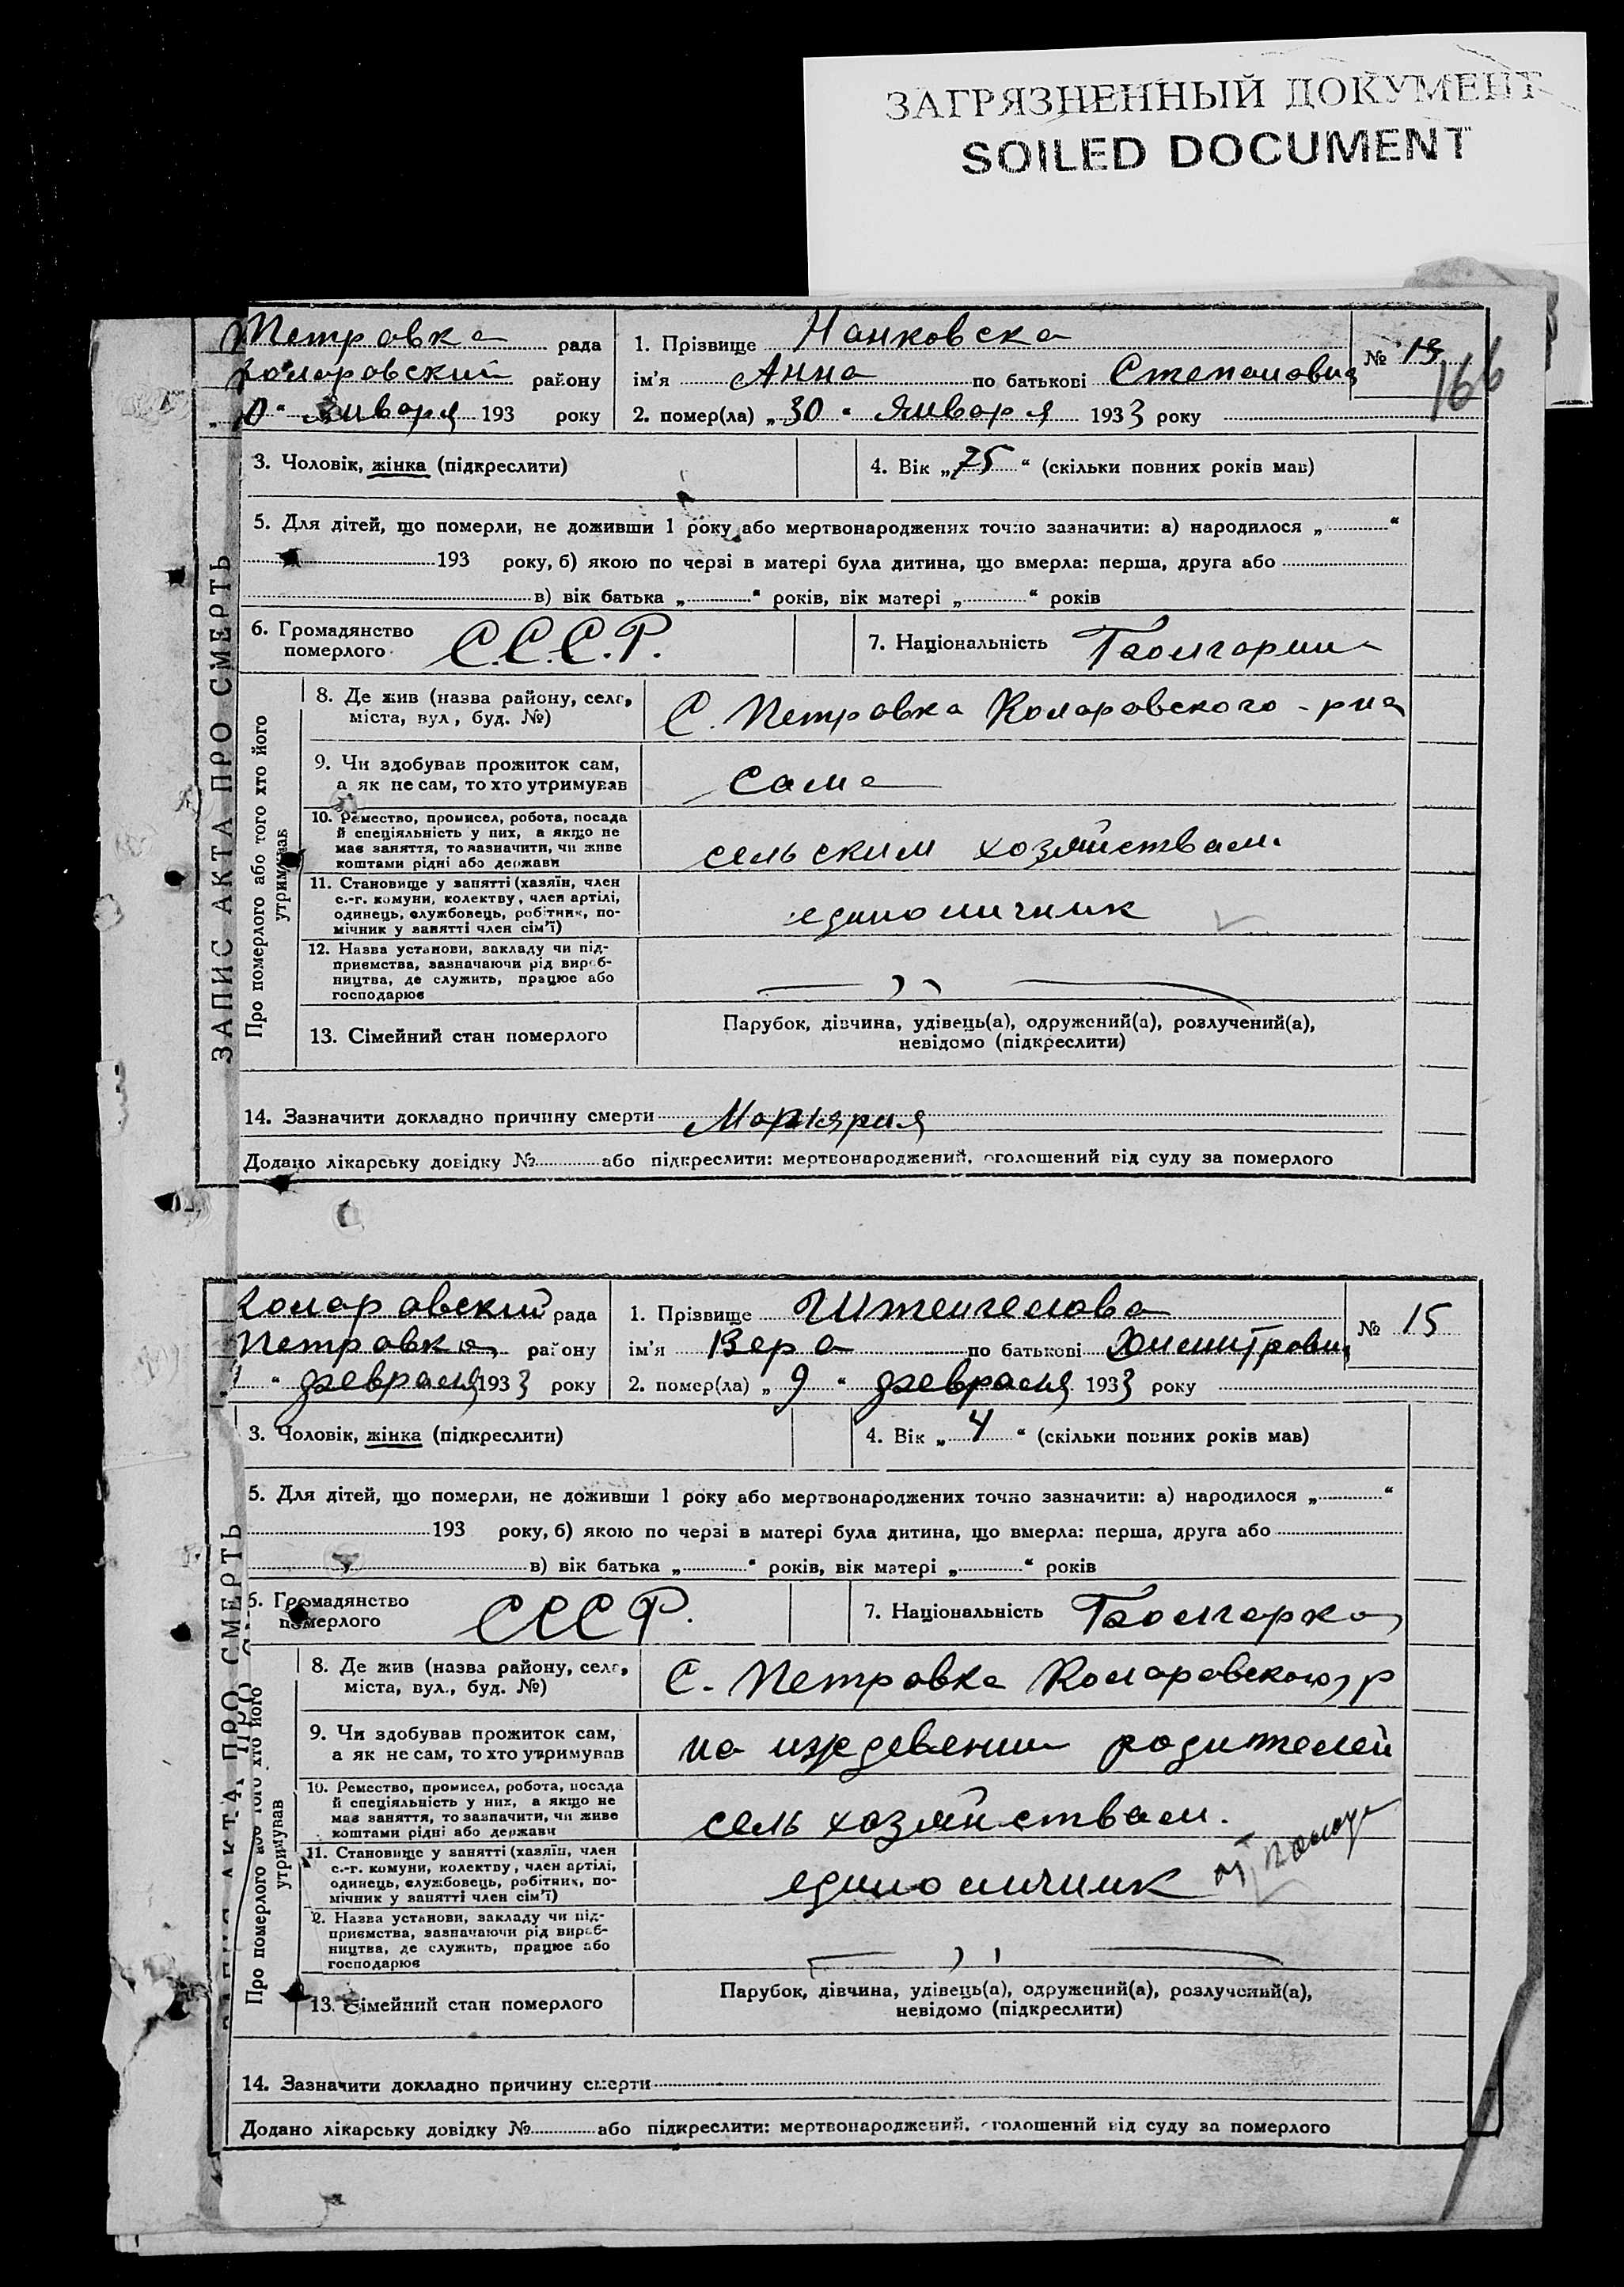 ЗАГРЯЗНЕННЫЙ ДОКУМЕНТ
SOILED DOCUMENT
ЗАПИС АКТА ПРО СМЕРТЬ
Петровка рада
Коларовский району
января 193 року
1. Прізвище Нанковска
№ 13
166
ім'я Анна по батькові Степановна
2. помер(ла) „30“ января 1933 року
3. Чоловік, жінка (підкреслити)
4. Вік „75“ (скільки повних років мав)
5. Для дітей, що померли, не доживши 1 року або мертвонароджених точно зазначити: а) народилося „ “
193 року, б) якою по черзі в матері була дитина, що вмерла: перша, друга або
в) вік батька „ “ років, вік матері „ “ років
6. Громадянство
померлого
С.С.С.Р.
7. Національність
Про померлого або того хто його
утримував
8. Де жив (назва району, села,
міста, вул, буд. №)
С. Петровка Коларовского р-на
9. Чи здобував прожиток сам,
а як не сам, то хто утримував
сама
10. Ремество, промисел, робота, посада
й спеціяльність у них, а якщо не
має заняття, то зазначити, чи живе
коштами рідні або держави
сельским хозяйствам.
11. Становище у занятті (хазяїн, член
с.-г. комуни, колективу, член артілі,
одинець, службовець, робітник, по-
мічник у занятті член сім'ї)
единоличник
12. Назва установи, закладу чи під-
приємства, зазначаючи рід вироб-
ництва, де служить, працює або
господарює
13. Сімейний стан померлого
Парубок, дівчина, удівець(а), одружений(а), розлучений(а),
невідомо (підкреслити)
14. Зазначити докладно причину смерти
Додано лікарську довідку № або підкреслити: мертвонароджений, оголошений від суду за померлого
Коларовский рада
Петровка району
февраля 1933 року
1. Прізвище Штенгелова
№ 15
ім'я Вера по батькові
2. помер(ла) „9“ февраля 1933 року
3. Чоловік, жінка (підкреслити)
4. Вік „4“ (скільки повних років мав)
5. Для дітей, що померли, не доживши 1 року або мертвонароджених точно зазначити: а) народилося „ “
193 року, б) якою по черзі в матері була дитина, що вмерла: перша, друга або
в) вік батька „ “ років, вік матері „ “ років
6. Громадянство
померлого
СССР.
7. Національність Болгарка
Про померлого або того хто його
утримував
8. Де жив (назва району, села,
міста, вул., буд. №)
С. Петровка Коларовского р
9. Чи здобував прожиток сам,
а як не сам, то хто утримував
на иждевении родителей
10. Ремество, промисел, робота, посада
й спеціяльність у них, а якщо не
має заняття, то зазначити, чи живе
коштами рідні або держави
сель хозяйствам.
11. Становище у занятті (хазяїн, член
с.-г. комуни, колективу, член артілі,
одинець, службовець, робітник, по-
мічник у занятті член сім'ї)
единоличник
12. Назва установи, закладу чи під-
приємства, зазначаючи рід вироб-
ництва, де служить, працює або
господарює
13. Сімейний стан померлого
Парубок, дівчина, удівець(а), одружений(а), розлучений(а),
невідомо (підкреслити)
14. Зазначити докладно причину смерти
Додано лікарську довідку № або підкреслити: мертвонароджений, оголошений від суду за померлого